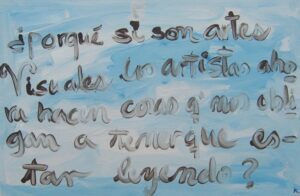 ¿porqué si son artes
Visuales los artistas aho
ra hacen cosas q' nos obli
gan a tener que es-
tar leyendo?